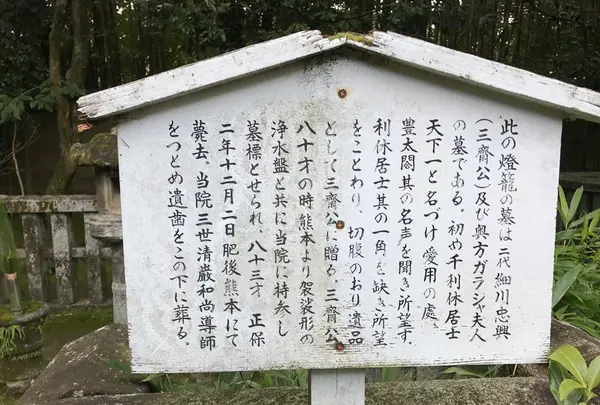 此の燈籠の墓は二代細川忠興
(三齋公)及び奥方ガラシャ夫人
の墓である。初め千利休居士
天下一と名づけ愛用の処、
豊太閤其の名声を聞き所望す。
利休居士其の一角を缺き所望
をことわり、切腹のおり遺品
として三齋公に贈る 三齋公
八十才の時熊本より袈裟形の
浄水盤と共に当院に持参し
墓標とせられ、八十三才 正保
二年十二月二日肥後熊本にて
薨去。当院三世清巌和尚導師
をつとめ遺歯をこの下に葬る。